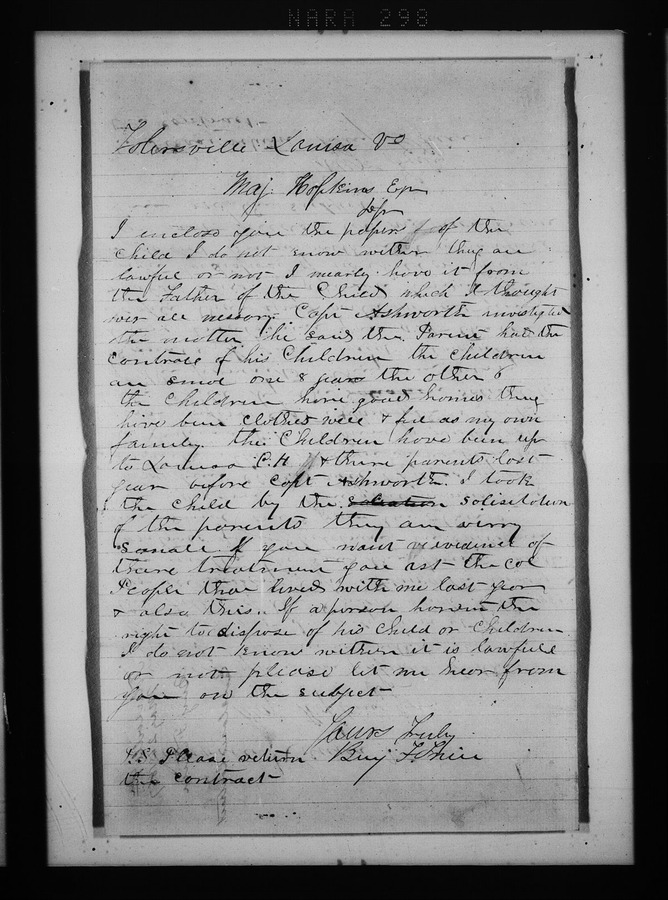 NARA 298
Tolersville Louisa Va
Maj. Hopkins Esqr
Dr Sir
I enclose you the papers of the
Child I do not know wither they are
lawful or not I nearly have it from
the Father of the Child which I thought
was all nessary. Capt Ashworth investigated
the matter he said the Parint had the
controle of his Children the children
are smal one 8 years the other 6
the Children have good homes they
have been clothed well & fed as my own
family. the Children have been up
to Louisa C.H & there parents last
year before Capt Ashworth. I took
the Child by the solisitation
of the parents they are verry
smalle If you want evidence of
there treatment you ast the col
People that lived with me last year
& also this. If a person haven the
right to dispose of his Child or Children
I do not know wither it is lawfull
or not please let me hear from
you on the subject
Yours Truly
P.S Please return Benj
the contract